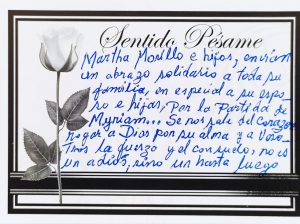 Sentido Pésame
Martha Morillo e hijos, envían
un abrazo solidario a toda su
familia, en especial a su espo_
so e hijas, Por la Partida de
Myriam... Se nos sale del corazón
rogar a Dios por su alma y a Voso_
tros la fuerza y el consuelo, no es
un adiós, sino un hasta luego